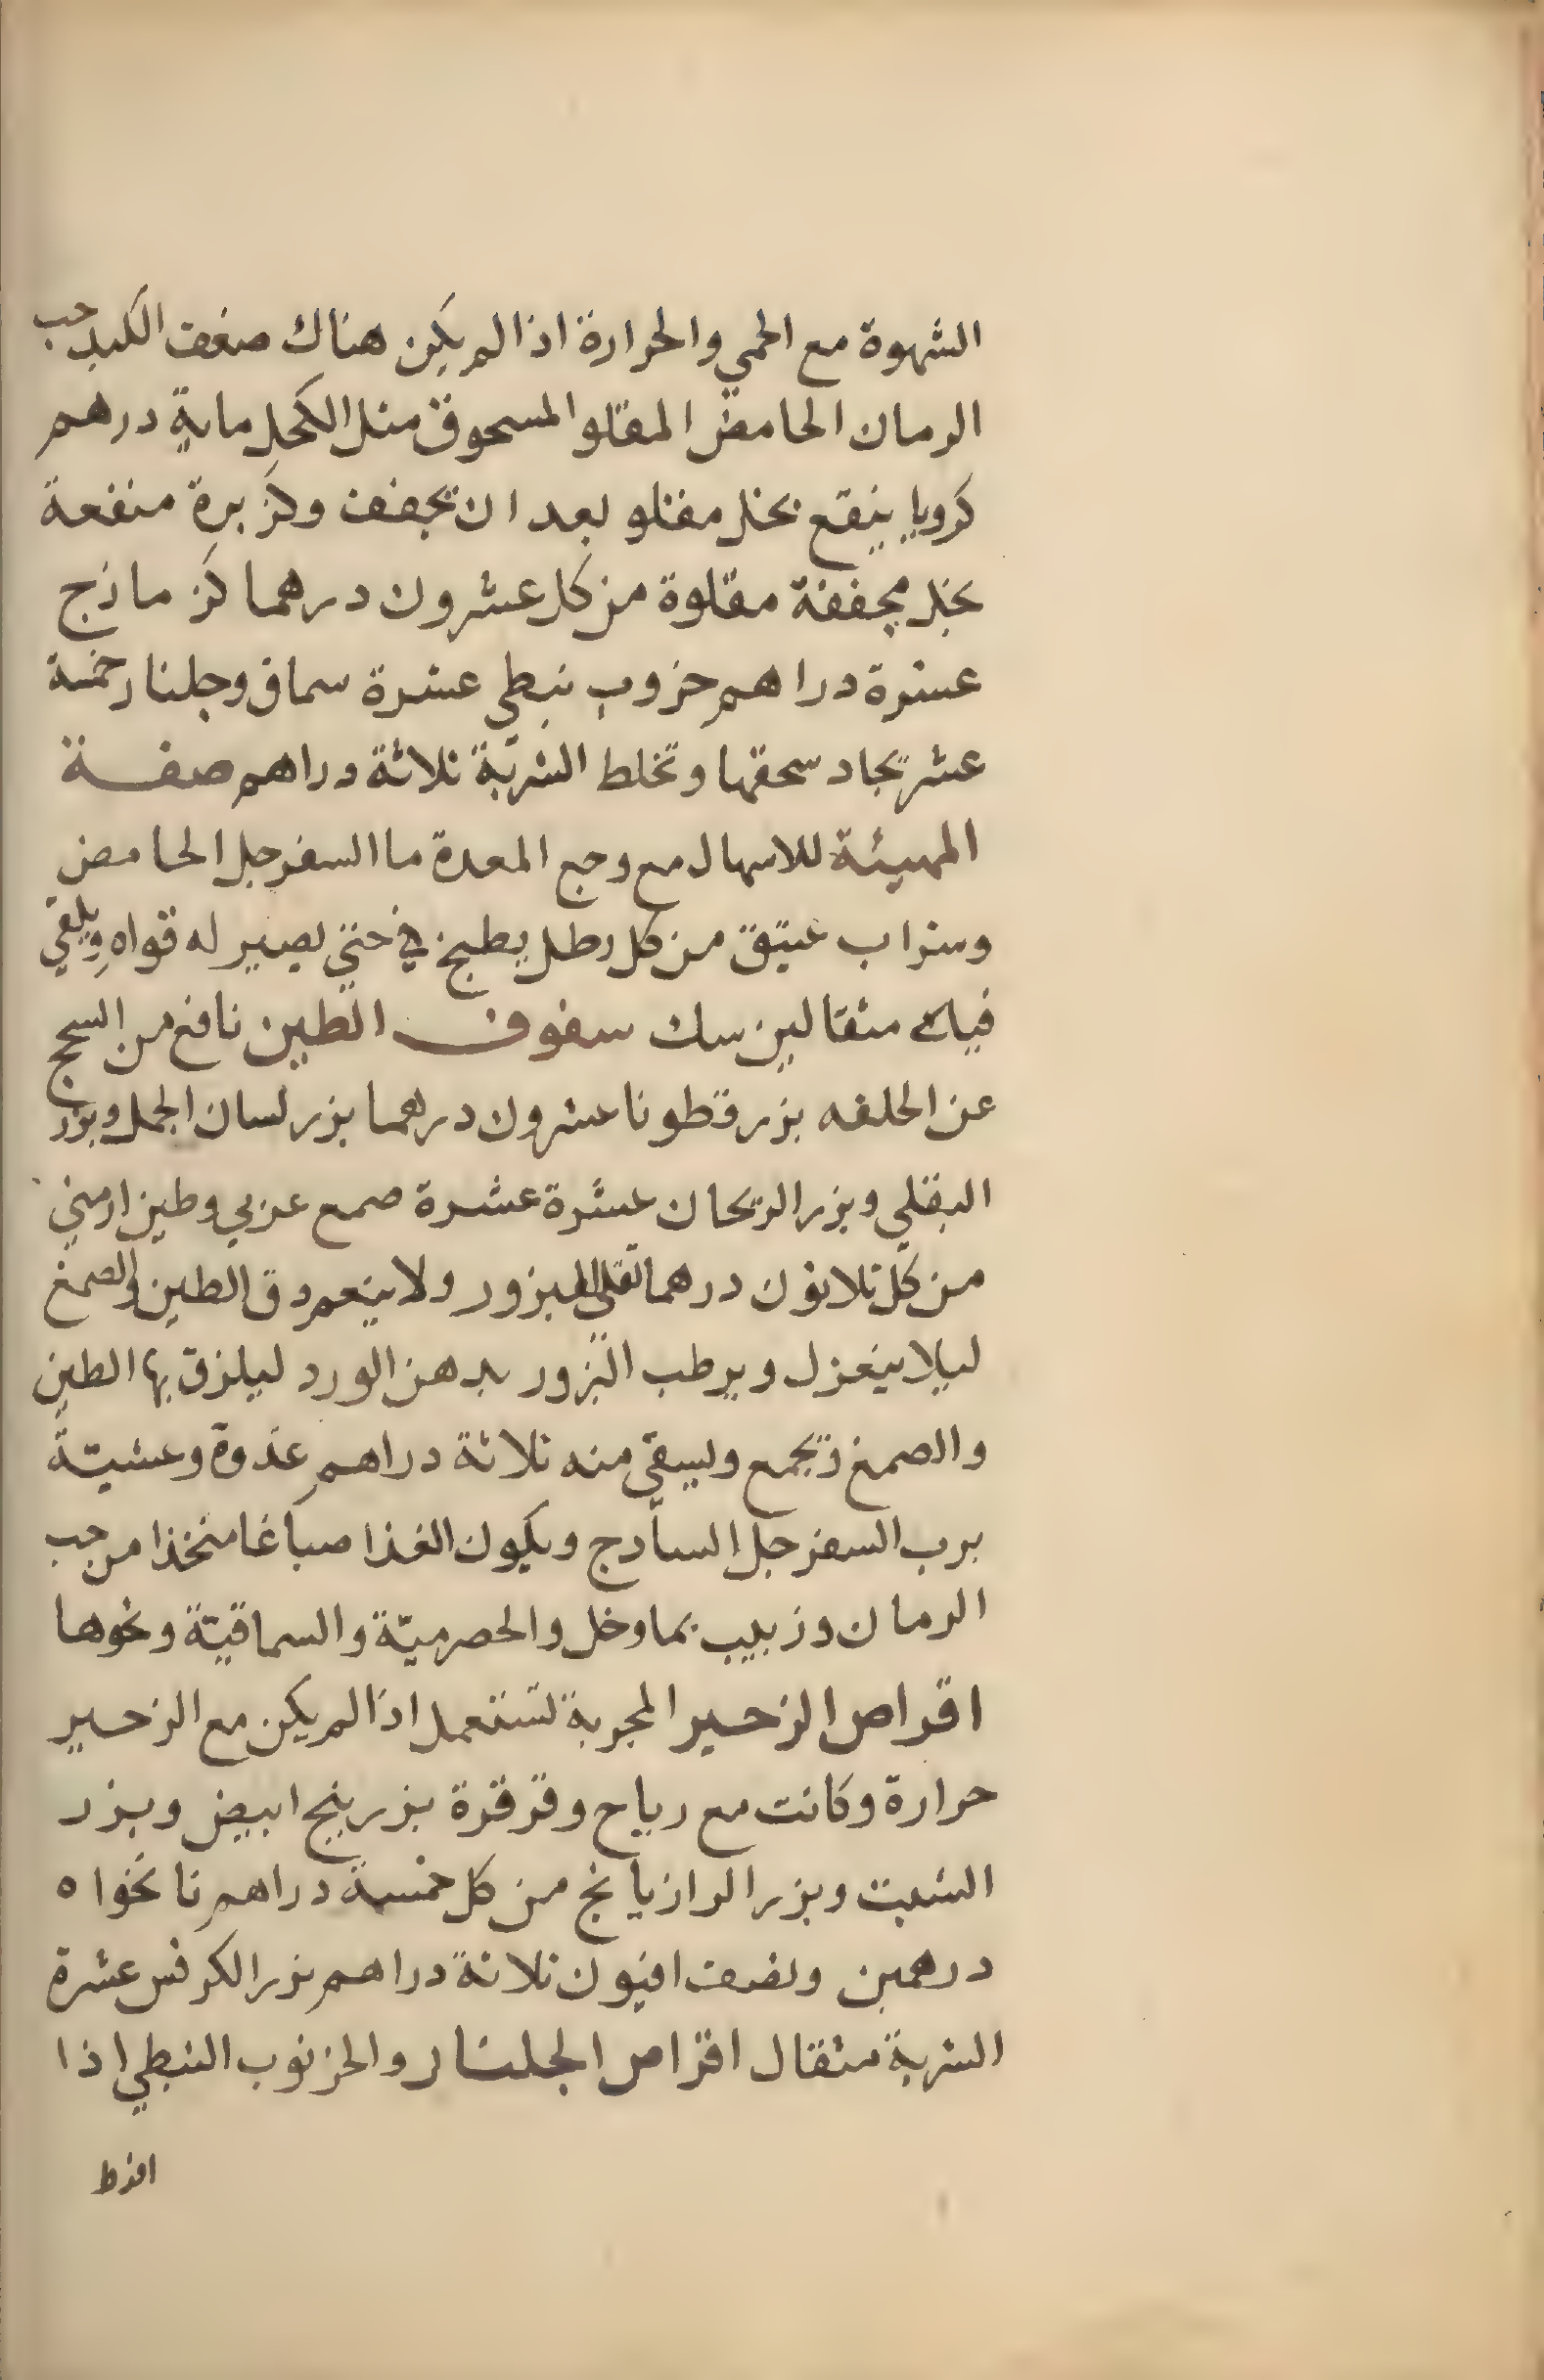 الشهوة مع الحمي والحرارة اذا لم يكن هناك ضعف الكبد حب
الرمان الحامض المقلو المسحوق مثل الكحل ماية درهم
كرويا ينقع بخل مقلو بعد ان تجفف وكزبرة منقعة
بخل مجففة مقلوة من كل عشرون درهما كزمازج
عشرة دراهم خروب نبطي عشرة سماق وجلنار خمسة
عشر يجاد سحقها وتخلط الشربة ثلاثة دراهم صفة
المهيئة للاسهال مع وجع المعدة ما السفرجل الحامض
وشراب عتيق من كل رطل يطبخ في حتي يصير له قواه ويلقي
فيه مثقالين سك سفوف الطين نافع من السحج
عن الحلفه بزر قطونا عشرون درهما بزر لسان الجمل وبزر
البقلي وبزر الريحان عشرة عشرة صمع عربي وطين ارمني
من كل ثلاثون درهما تقلي البزور ولا ينعم دق الطين والصمغ
ليلا ينعزل ويرطب البزور بدهن الورد ليلزق بها الطين
والصمغ وتجمع ويسقي منه ثلاثة دراهم غدوة وعشيّة
برب السفرجل السادج ويكون الغذا صباغا متخذا من حب
الرمان وزبيب بما وخل والحصرميّة والسماقيّة ونحوها
اقراص الزحير المجربة تستعمل اذا لم يكن مع الزحير
حرارة وكانت مع رياح وقرقرة بزر بنج ابيض وبزر
الشبت وبزر الرازيانج من كل خمسة دراهم نانخواه
درهمين ونصف افيون ثلاثة دراهم بزر الكرفس عشرة
الشربة مثقال اقراص الجلنار والخرنوب النبطي اذا
افرط